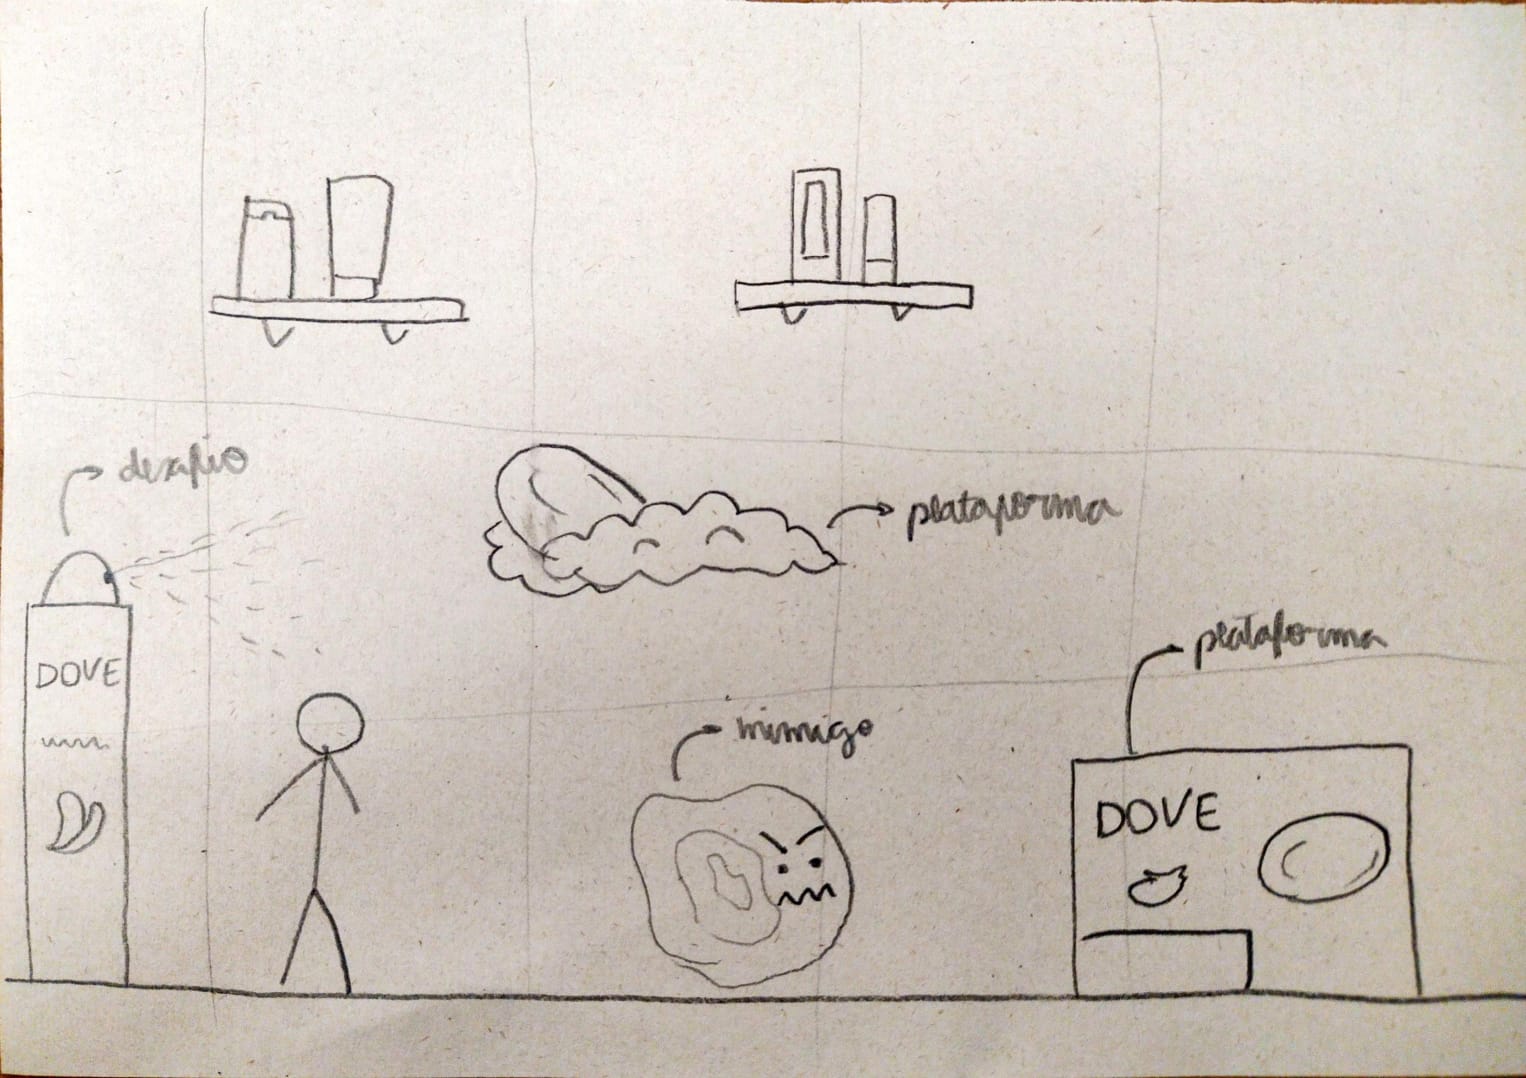 desafio
plataforma
plataforma
DOVE
inimigo
DOVE